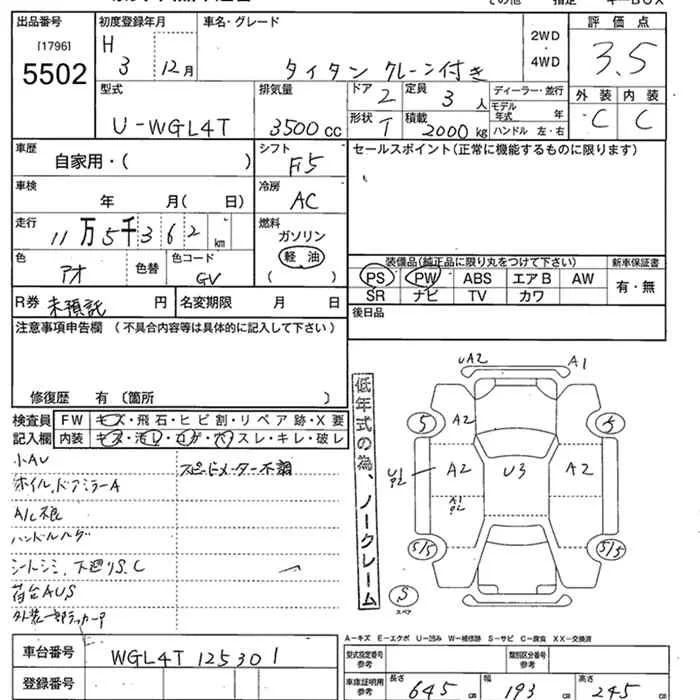 その他 指定 キーBOX
出品番号 初度登録年月 車名・グレード 評価点
[1796] H 2WD
5502 3 12月 タイタン クレーン付き 4WD 3.5
型式 排気量 ドア 2 定員 3人 ディーラー・並行 外装 内装
U-WGL4T 3500cc 形状 T 積載 2000kg モデル年式 年 C C
ハンドル 左・右
車歴 自家用・( ) シフト F5 セールスポイント(正常に機能するものに限ります)
車検 年 月( 日) 冷房 AC
走行 11万5千362km 燃料 ガソリン 軽油 ( )
色 アオ 色替 色コード GV
装備品(純正品に限り丸をつけて下さい) 新車保証書
PS PW ABS エアB AW 有・無
SR ナビ TV カワ
R券 未預託 円 名変期限 月 日 後日品
注意事項申告欄 (不具合内容等は具体的に記入して下さい)
修復歴 有 〔箇所 〕
検査員 FW キズ・飛石・ヒビ割・リペア跡・X要
記入欄 内装 キズ・汚レ・コゲ・穴・スレ・キレ・破レ
小AU スピードメーター不調
ホイル,ドアミラーA
シートシミ、下廻りS,C
荷台AUS
低年式の為、ノークレーム
UA2 A1
5 A2 5
U1 P2 A2 U3 A2
A1 P2
5/5 5/5
S
スペア
A-キズ E-エクボ U-凹み W-補修跡 S-サビ C-腐食 XX-交換済
車台番号 WGL4T 125301 型式指定番号 参考 類別区分番号 参考
登録番号 車庫証明用 参考 長さ 645cm 幅 193cm 高さ 245cm